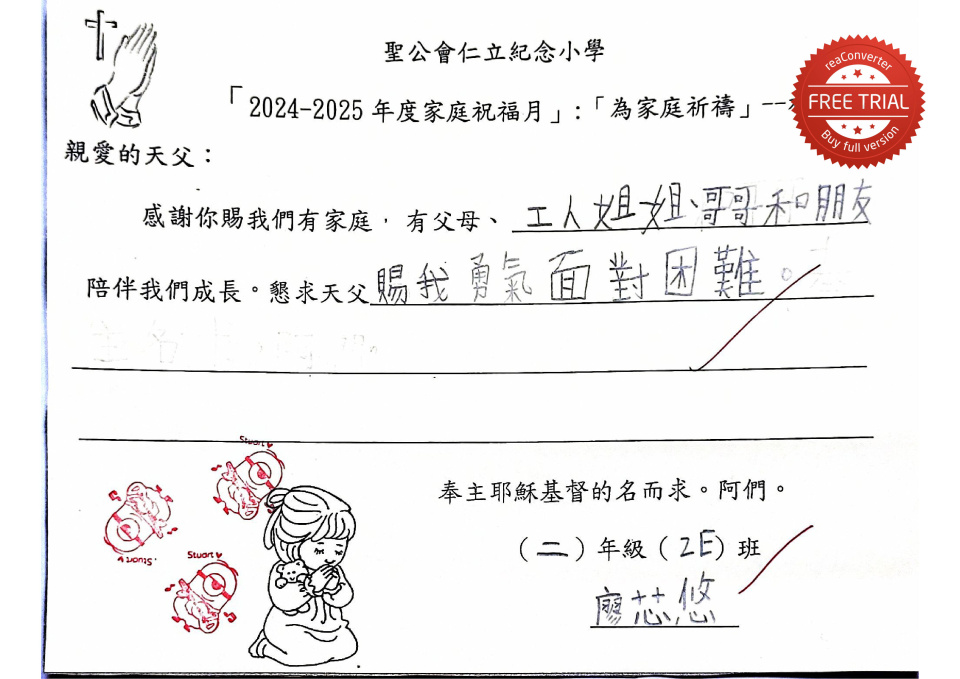 聖公會仁立紀念小學
「2024-2025 年度家庭祝福月」:「為家庭祈禱」--
reaConverter
FREE TRIAL
Buy full version
親愛的天父：
感謝你賜我們有家庭，有父母、工人姐姐、哥哥和朋友
陪伴我們成長。懇求天父賜我勇氣面對困難。
Stuart
Stuart
Stuart
奉主耶穌基督的名而求。阿們。
（二）年級（2E）班
廖芯悠